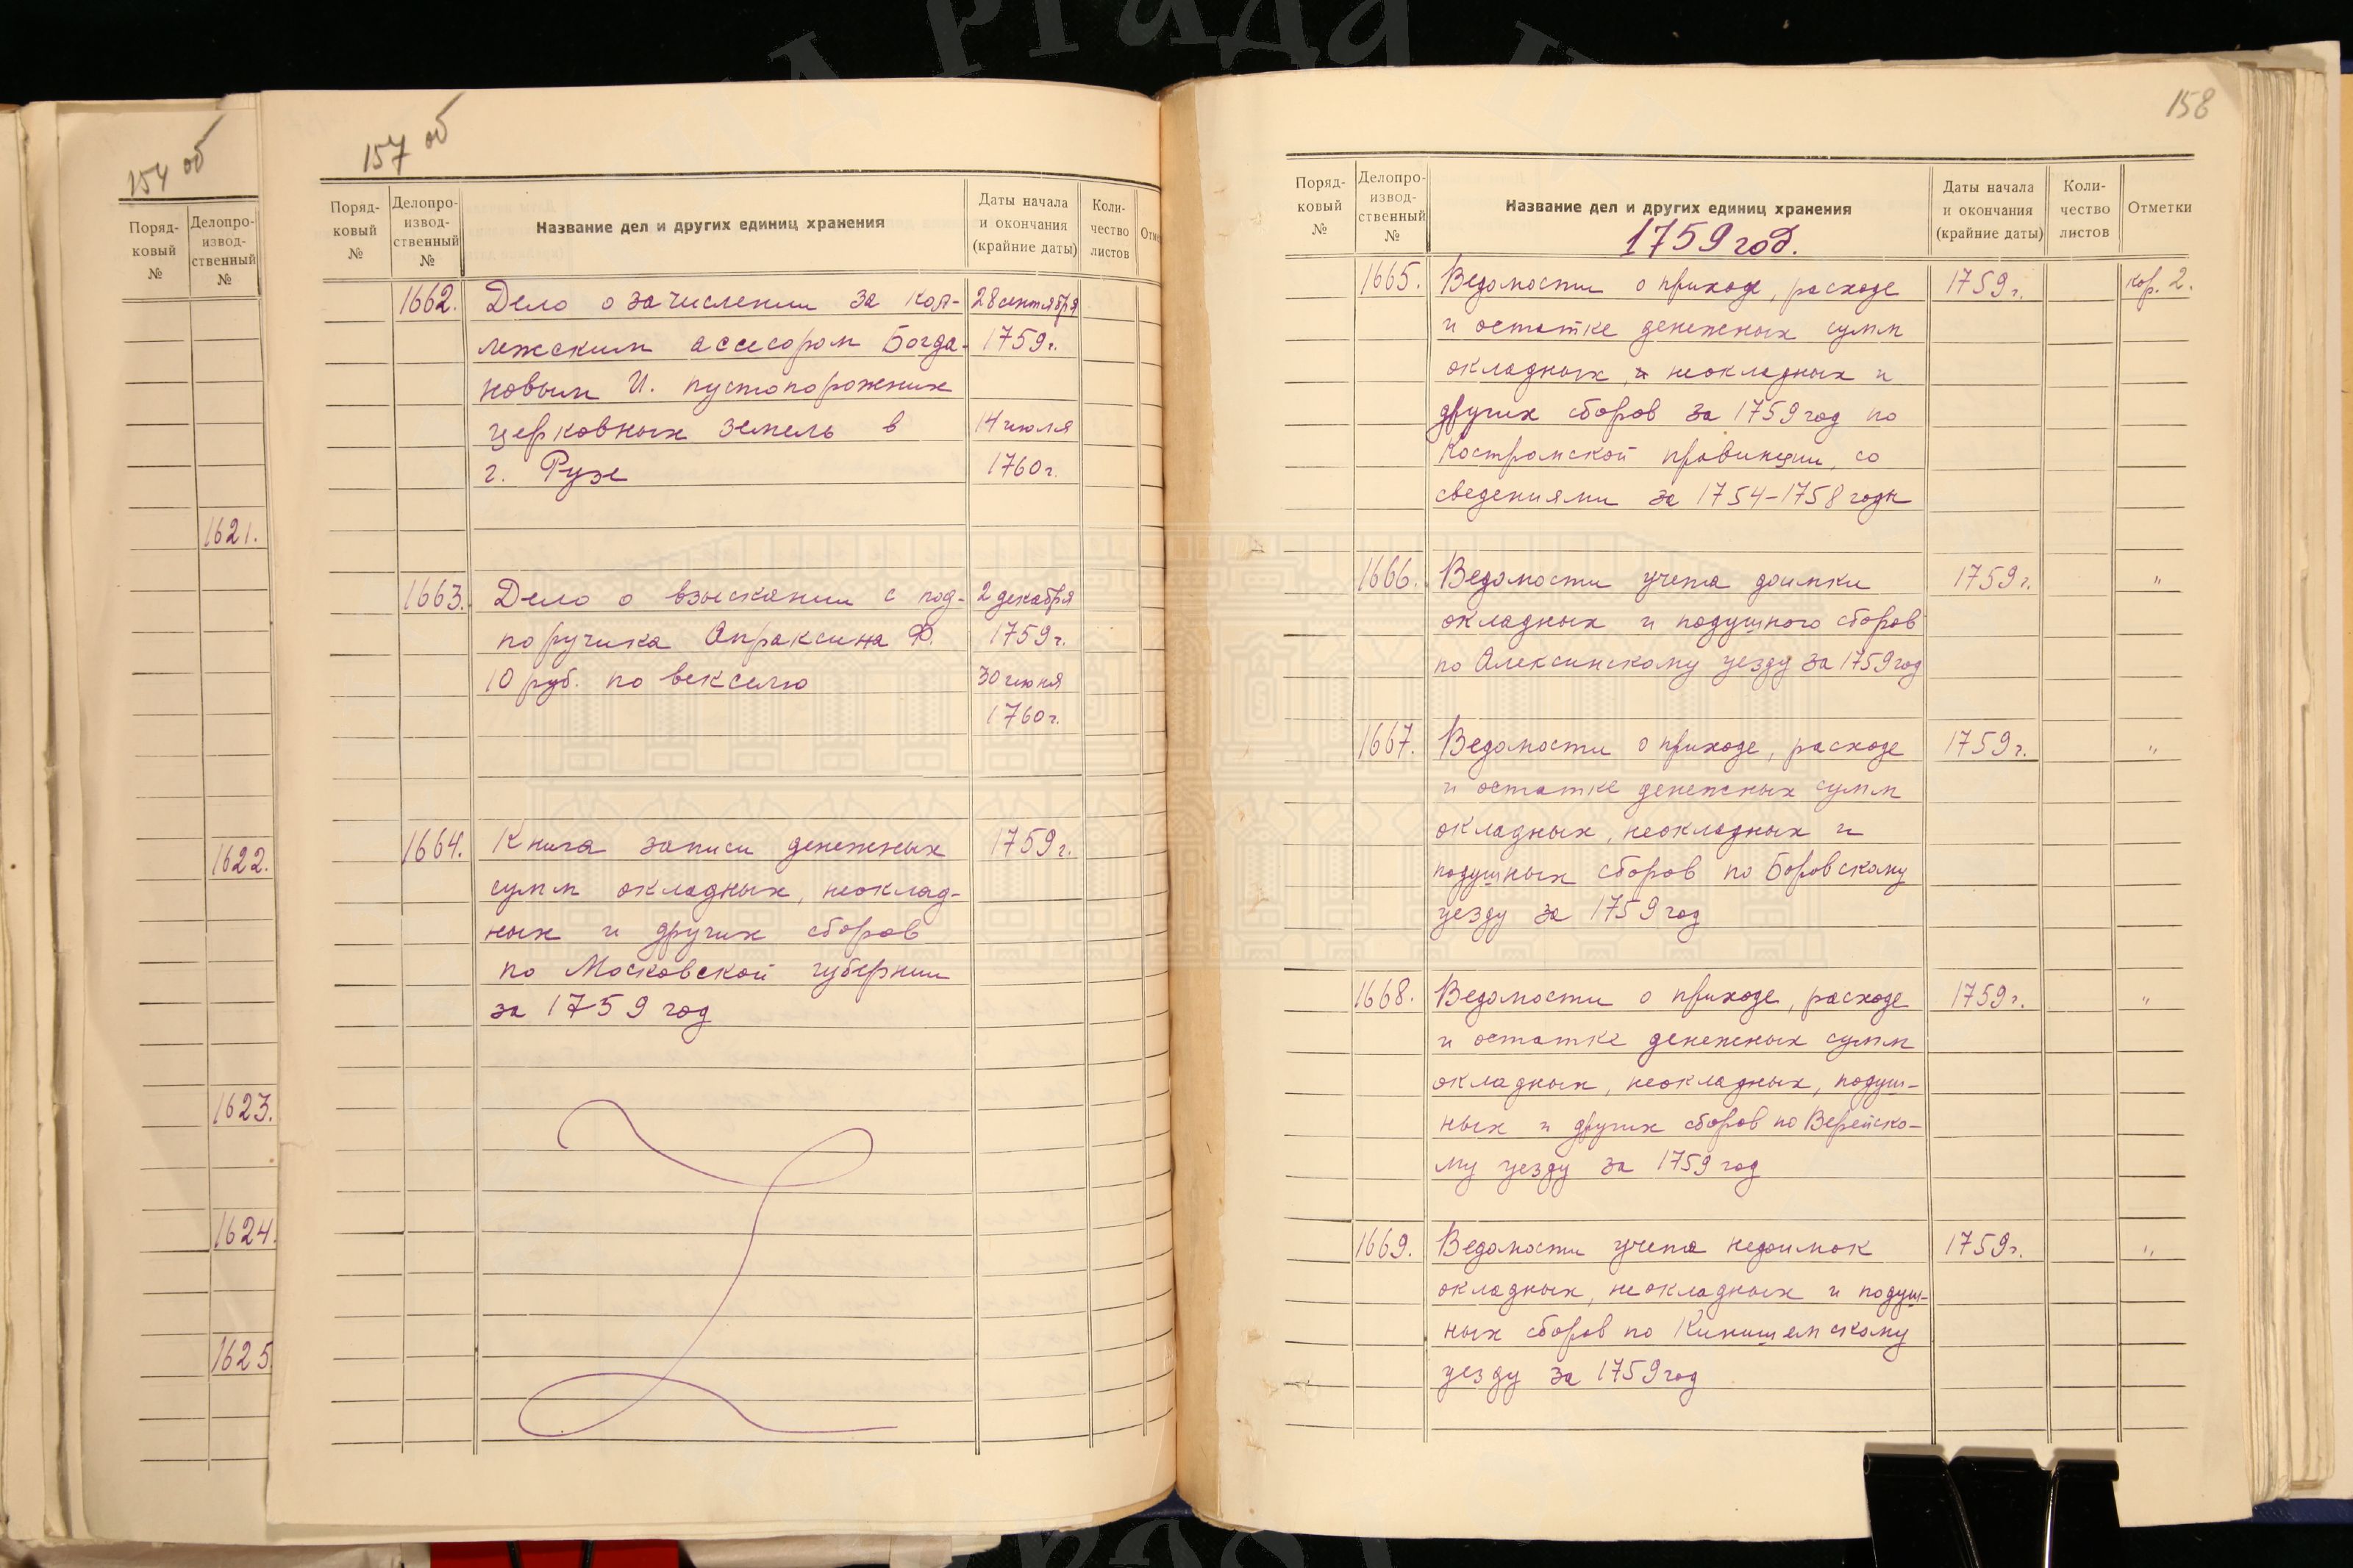 154 об
Поряд-
ковый
№
Делопро-
извод-
ственный
№
1621.
1622.
1623.
1624.
1625.
157 об
Поряд-
ковый
№
Делопро-
извод-
ственный
№
Название дел и других единиц хранения
Даты начала
и окончания
(крайние даты)
Коли-
чество
листов
Отме
1662. Дело о зачислении за кол- 28 сентября
лежским асесором Богда- 1759 г.
новым И. пустопорожних
церковных земель в 14 июля
г. Рузе 1760 г.
1663. Дело о взыскании с под- 2 декабря
поручика Апраксина Ф. 1759 г.
10 руб. по векселю 30 июня
1760 г.
1664. Книга записи денежных 1759 г.
сумм окладных, неоклад-
ных и других сборов
по Московской губернии
за 1759 год
158
Поряд-
ковый
№
Делопро-
извод-
ственный
№
Название дел и других единиц хранения
1759 год.
Даты начала
и окончания
(крайние даты)
Коли-
чество
листов
Отметки
1665. Ведомости о приходе, расходе 1759 г. кор. 2.
и остатке денежных сумм
окладных, и неокладных и
других сборов за 1759 год по
Костромской провинции, со
сведениями за 1754-1758 годы
1666. Ведомости учета доимки 1759 г. "
окладных и подушного сборов
по Алексинскому уезду за 1759 год
1667. Ведомости о приходе, расходе 1759 г. "
и остатке денежных сумм
окладных, неокладных и
подушных сборов по Боровскому
уезду за 1759 год
1668. Ведомости о приходе, расходе 1759 г. "
и остатке денежных сумм
окладных, неокладных, подуш-
ных и других сборов по Верейско-
му уезду за 1759 год
1669. Ведомости учета недоимок 1759 г. "
окладных, неокладных и подуш-
ных сборов по Кинишемскому
уезду за 1759 год